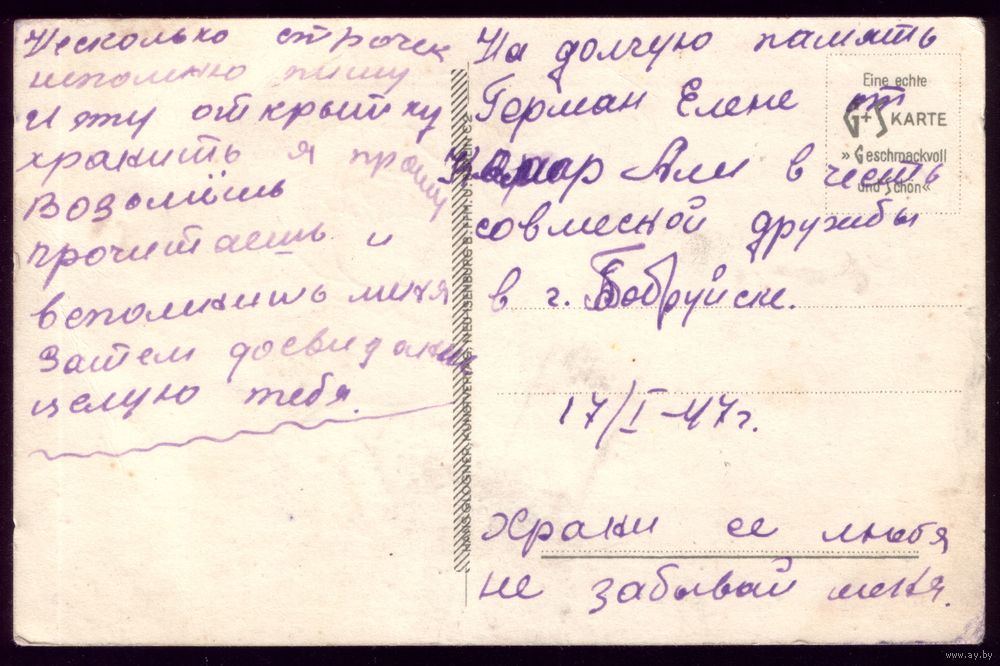 Несколько строчек
исполню пишу
и эту открытку
хранить я прошу
Возомлёшь
прочитаешь и
вспомнишь меня
Затем досвидани
целую тебя.
На долгую память
Герман Елене от
Али в честь
совмеской дружбы
в г. Бобруйске.
17/I-47г.
Храни се любя
не забывай меня.
Eine echte
G+S KARTE
»Geschmackvoll
und Schön«
HANS GLOGNER, KUNSTVERLAG, NEU ISENBURG B. FFM. U. BERLIN C 2
www.ay.by